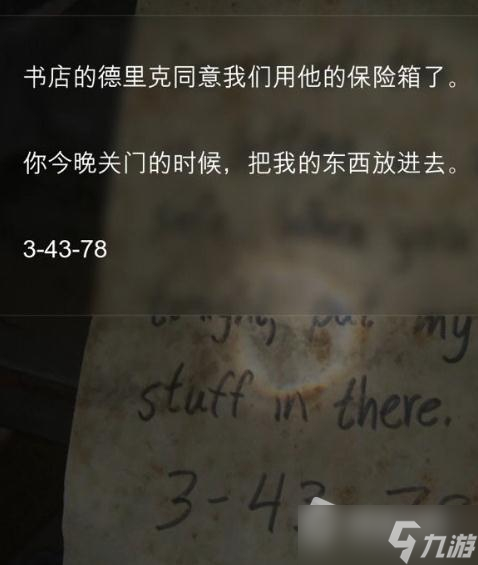 书店的德里克同意我们用他的保险箱了。
你今晚关门的时候，把我的东西放进去。
3-43-78
tonight, put my
stuff in there.
3-43-78
九游